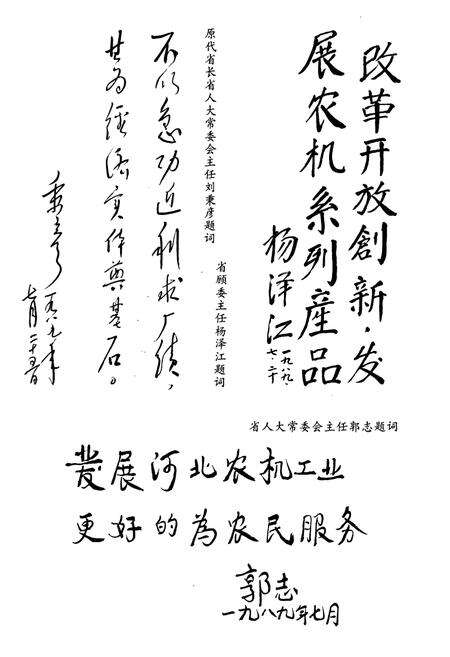 改革开放創新·发
展农机系列産品
杨泽江
一九八九.
七.二十
省顾委主任杨泽江题词
原代省长省人大常委会主任刘秉彦题词
不以急功近利求厂绩，
甘为经济实体奠基石。
一九八九年
七月二十五日
省人大常委会主任郭志题词
发展河北农机工业
更好的为农民服务
郭志
一九八九年七月